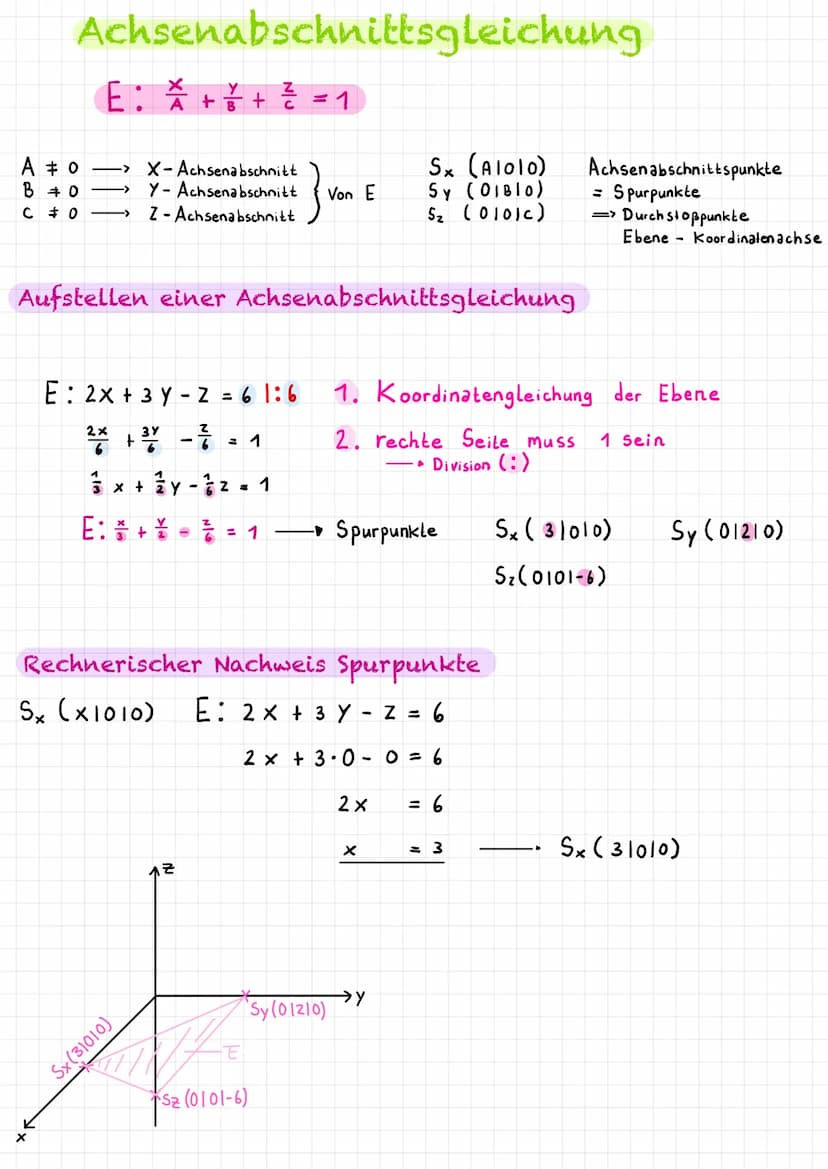 Achsenabschnittsgleichung
E: x/A + y/B + z/C = 1
A ≠ 0 → X-Achsenabschnitt
B ≠ 0 → Y-Achsenabschnitt } Von E
C ≠ 0 → Z-Achsenabschnitt
Sx (A|0|0) Achsenabschnittspunkte
Sy (0|B|0) = Spurpunkte
Sz (0|0|C) => Durchstoßpunkte
Ebene - Koordinatenachse
Aufstellen einer Achsenabschnittsgleichung
E: 2x + 3y - z = 6 |:6 1. Koordinatengleichung der Ebene
2x/6 + 3y/6 - z/6 = 1 2. rechte Seite muss 1 sein
→ Division (:)
1/3 x + 1/2 y - 1/6 z = 1
E: x/3 + y/2 - z/6 = 1 → Spurpunkte Sx (3|0|0) Sy (0|2|0)
Sz (0|0|-6)
Rechnerischer Nachweis Spurpunkte
Sx (x|0|0) E: 2x + 3y - z = 6
2x + 3·0 - 0 = 6
2x = 6
x = 3 → Sx (3|0|0)
z
y
Sy (0|2|0)
Sx (3|0|0)
E
Sz (0|0|-6)
x